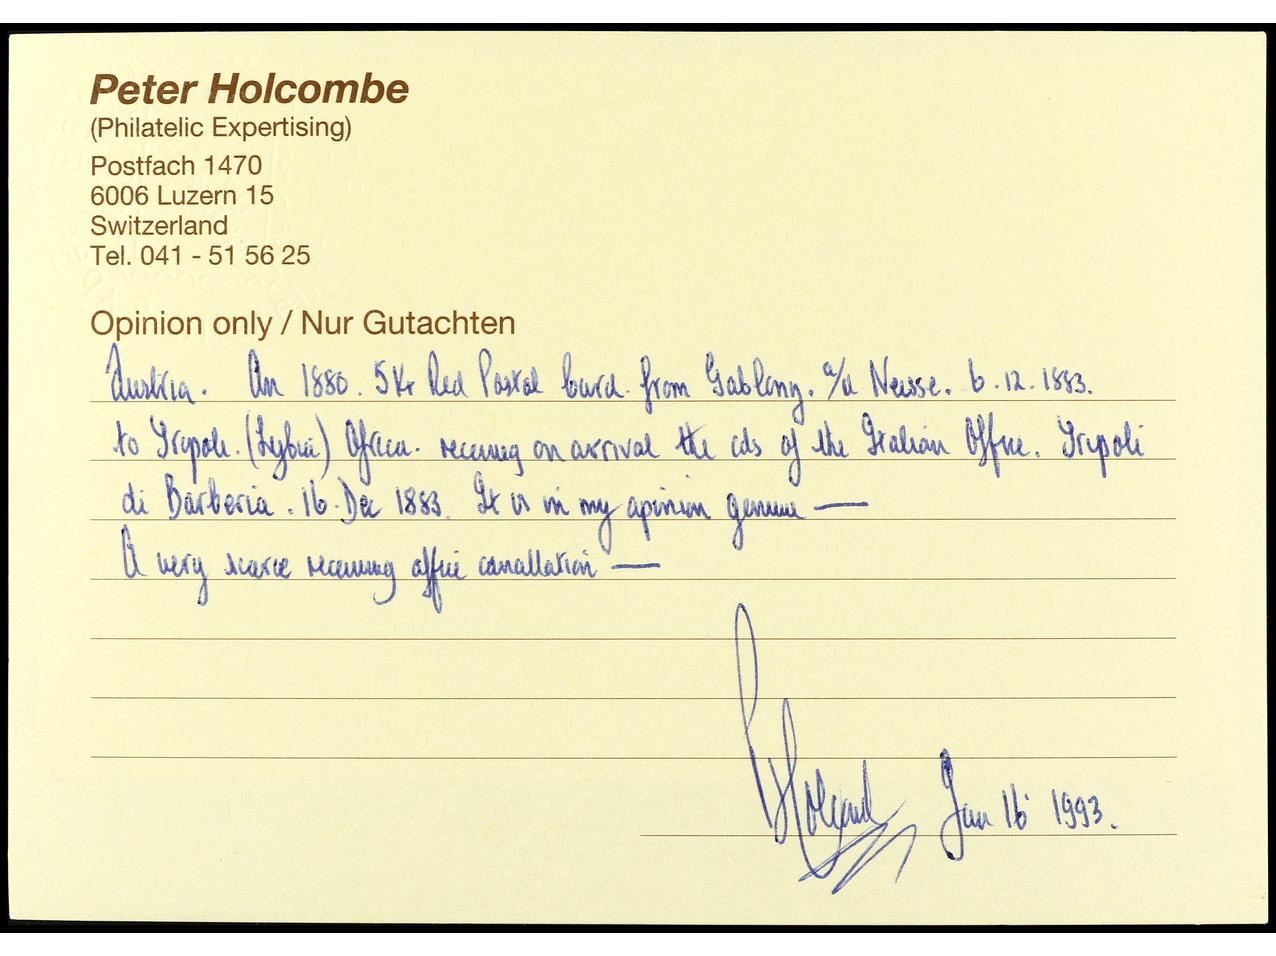 Peter Holcombe
(Philatelic Expertising)
Postfach 1470
6006 Luzern 15
Switzerland
Tel. 041 - 51 56 25
Opinion only / Nur Gutachten
Austria. An 1880. 5Kr Red Postal Card. from Gablonz. a/d Neisse. 6.12.1883.
to Tripoli. (Lybia) Africa. receiving on arrival the cds of the Italian Office. Tripoli
di Barberia. 16. Dec 1883. It is in my opinion genuine —
A very scarce receiving office cancallation —
Jan 16 1993.